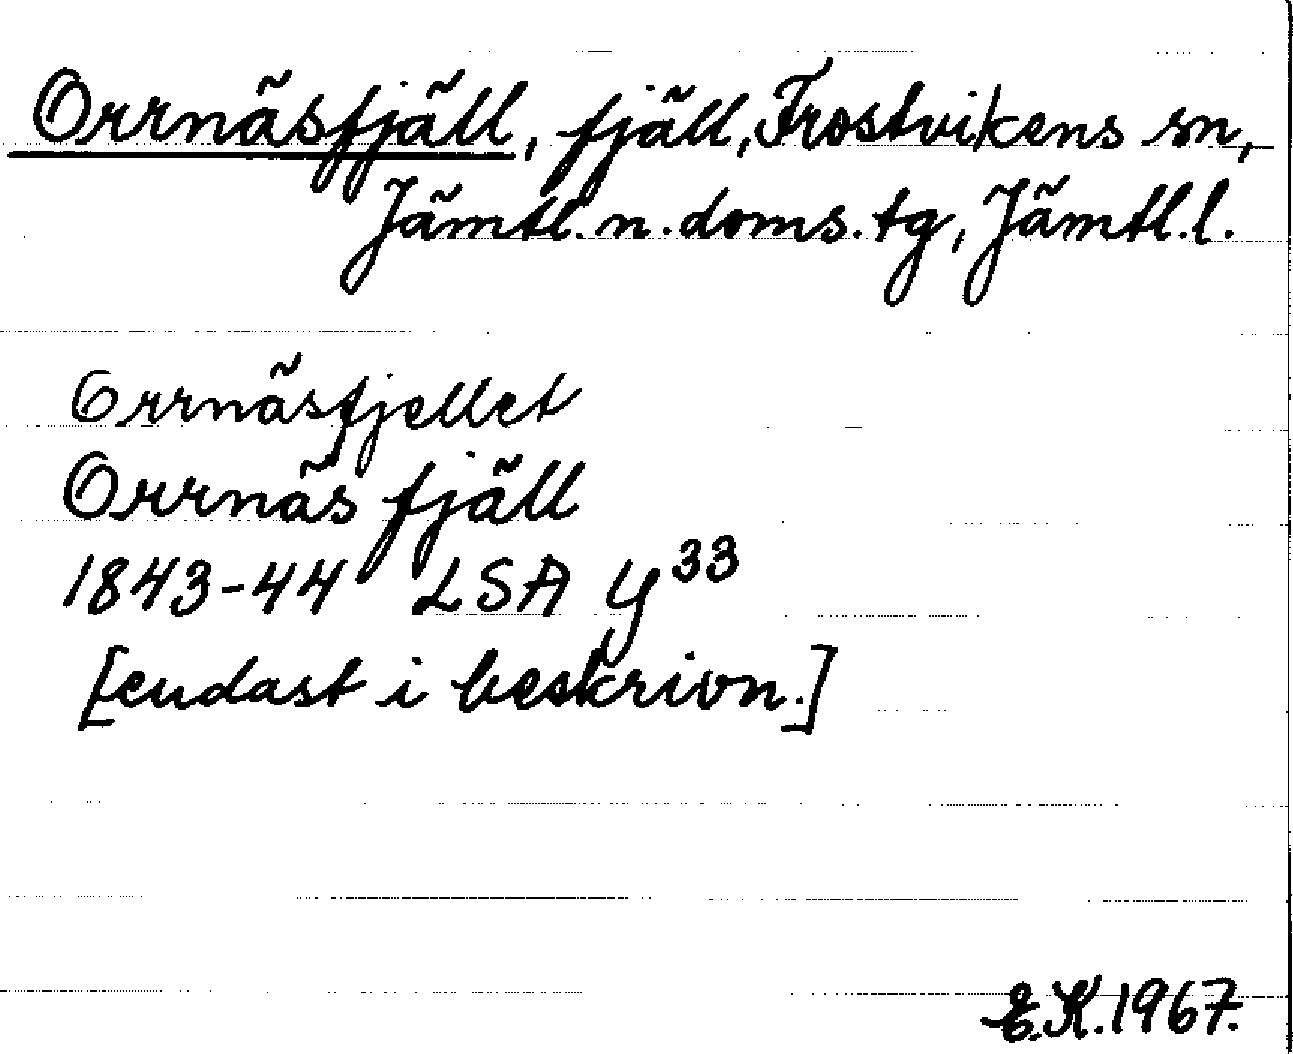 Orrnäsfjäll, fjäll, Frostvikens sn,
Jämtl. n. doms. tg, Jämtl. l.
Orrnäsfjellet
Orrnäs fjäll
1843-44 LSA Y³³
[endast i beskrivn.]
E.K. 1967.